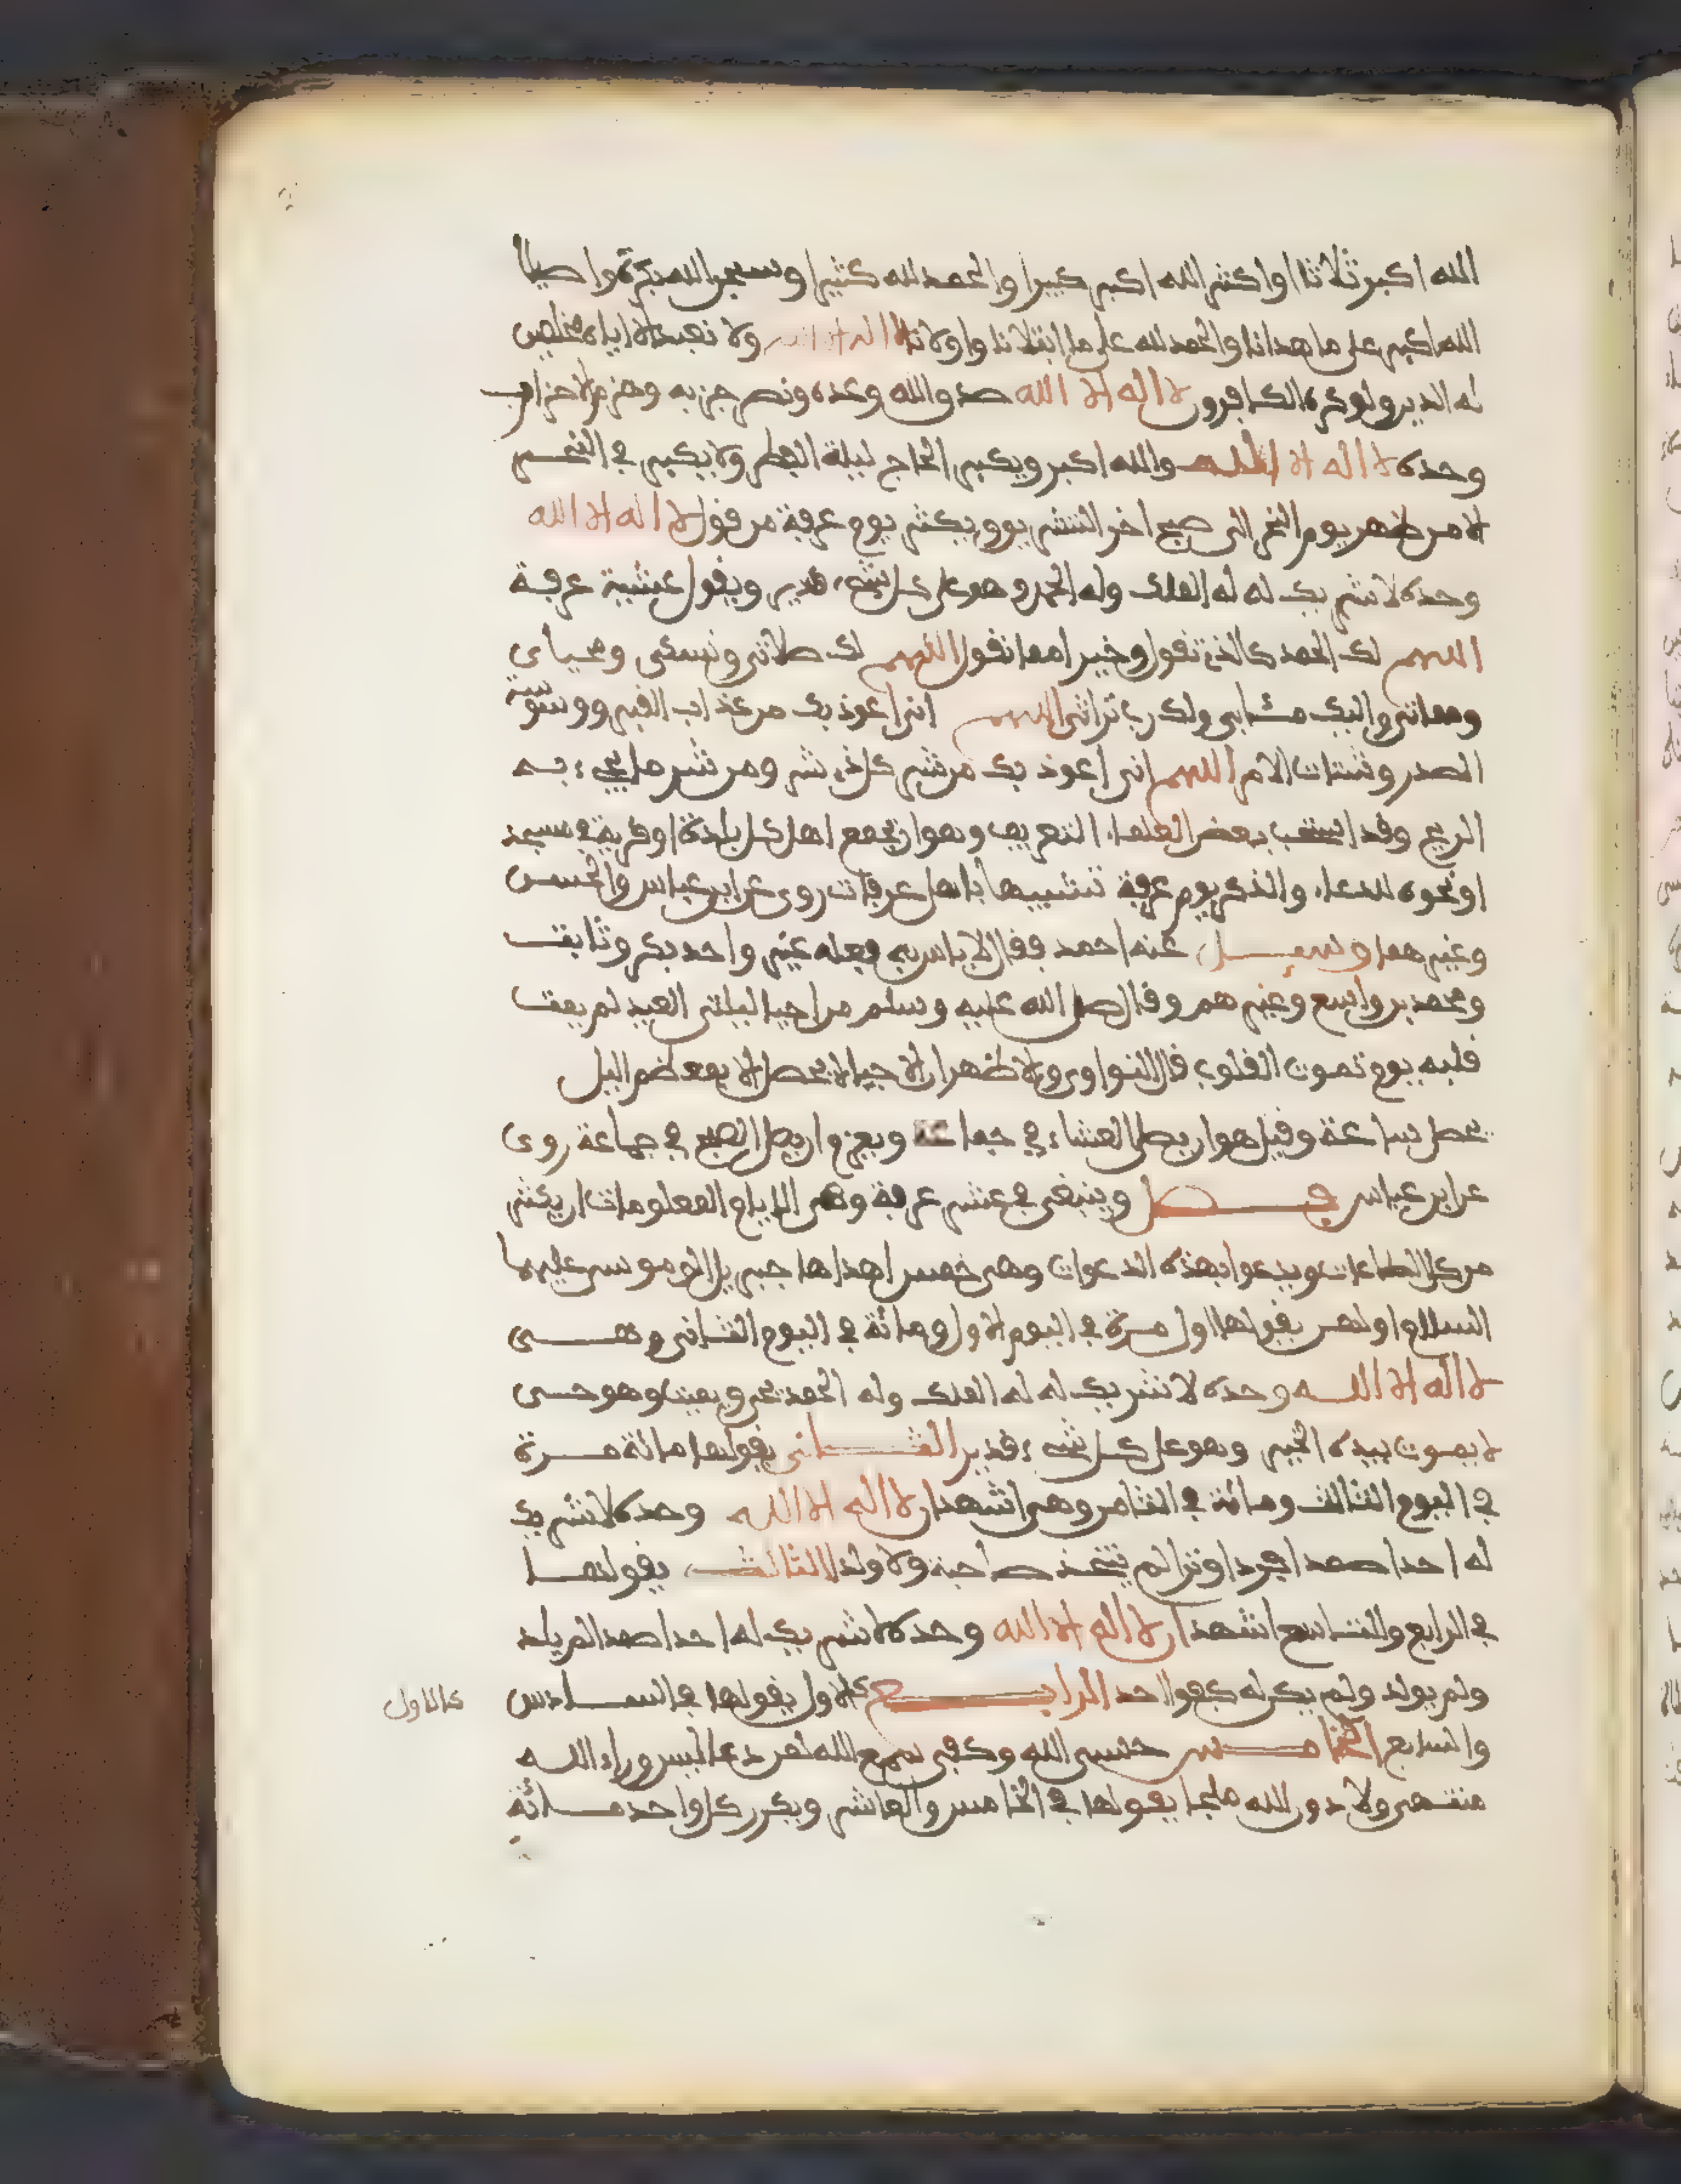 الله اكبر ثلاثا او اكثر الله اكبر كبيرا والحمد لله كثيرا وسبحن الله بكرة واصيلا
الله اكبر على ما هدانا والحمد لله على ما ابتلانا واولانا لا اله الا الله ولا نعبد الا اياه مخلصين
له الدين ولو كره الكافرون لا اله الا الله صدق الله وعده ونصر حزبه وهزم الاحزاب
وحده لا اله الا الله والله اكبر ويكبر الحاج ليلة الفطر ولا يكبر في النحر
الا من ظهر يوم النحر الى صبح اخر التشريق ويكثر يوم عرفة من قول لا اله الا الله
وحده لا شريك له له الملك وله الحمد وهو على كل شيء قدير ويقول عشية عرفة
اللهم لك الحمد كالذي تقول وخير مما نقول اللهم لك صلاتي ونسكي ومحياي
ومماتي واليك مئابي ولك رب تراثي اللهم اني اعوذ بك من عذاب القبر ووسوسة
الصدر وشتات الامر اللهم اني اعوذ بك من شر كل ذي شر ومن شر ما يجيء به
الريح وقد استحب بعض العلماء التعريف وهو ان يجمع اهل كل بلدة او قرية في مسجد
او نحوه للدعاء والذكر يوم عرفة تشبيها باهل عرفات روى عن ابن عباس والحسن
وغيرهما وسيل عنه احمد فقال لا باس به فعله غير واحد بكر وثابت
ومحمد بن واسع وغيرهم وقال صلى الله عليه وسلم من احيا ليلتي العيد لم يمت
قلبه يوم تموت القلوب قال النواوي والاظهر ان الاحيا لا يحصل الا بمعظم اليل
يحصل بساعة وقيل هو ان يصلي العشاء في جماعة ويعزم ان يصلي الصبح في جماعة روى
عن ابن عباس فصل وينبغي في عشر عرفة وهي الايام المعلومات ان يكثر
من كل الطاعات ويدعوا بهذه الدعوات وهي خمس اهداها جبريل الى موسى عليهما
السلام اولهن يقولها اول مرة في اليوم الاول ومائة في اليوم الثاني وهي
لا اله الا الله وحده لا شريك له له الملك وله الحمد يحي ويميت وهو حي
لا يموت بيده الخير وهو على كل شيء قدير الثاني يقولها مائة مرة
في اليوم الثالث ومائة في الثامن وهي اشهد ان لا اله الا الله وحده لا شريك
له احدا صمدا فردا وترا لم يتخذ صاحبة ولا ولدا الثالث يقولها
في الرابع والتاسع اشهد ان لا اله الا الله وحده لا شريك له احدا صمدا لم يلد
ولم يولد ولم يكن له كفوا احد الرابع كالاول يقولها في السادس
كالاول
والسابع الخامس حسبي الله وكفى سمع الله لمن دعا ليس وراء الله
منتهى ولا دون الله ملجا يقولها في الخامس والعاشر ويكرر كل واحد مائة